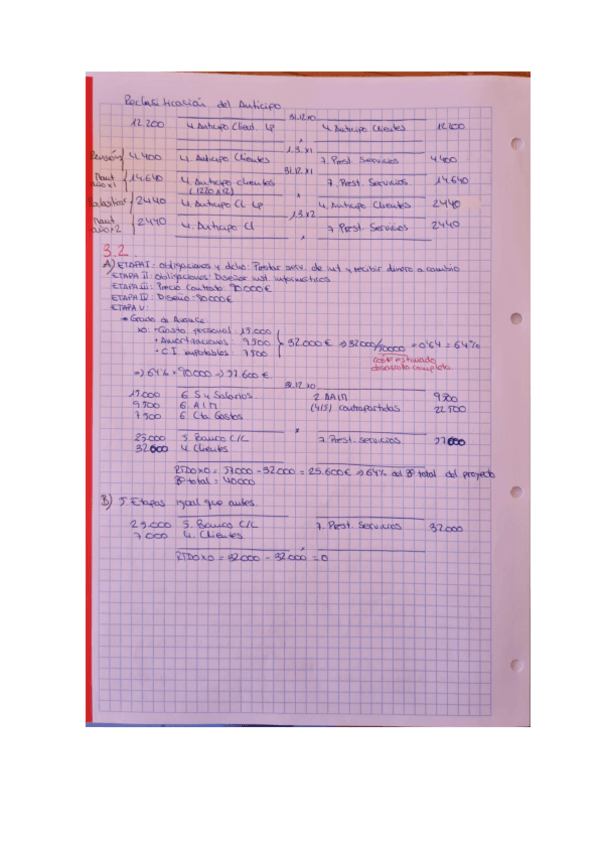 Reclasificación del Anticipo
31.12.x0
12.200 4. Anticipo Client. LP 4. Anticipo Clientes 12.200
1.3.x1
Revisión 4.400 4. Anticipo Clientes 7. Prest. Servicios 4400
31.12.x1
Mant año x1 14.640 4. Anticipo clientes 7. Prest. Servicios 14.640
(1220x12)
2440 4. Anticipo Cl LP 4. Anticipo Clientes 2440
1.3.x2
Mant año x2 2440 4. Anticipo Cl 7 Prest. Servicios 2440
3.2.
A) ETAPA I: obligaciones y dcho: Prestar serv. de inf y recibir dinero a cambio
ETAPA II: obligaciones: Diseñar inst. informáticos
ETAPA III: Precio Contrato: 90.000€
ETAPA IV: Diseño: 90.000€
ETAPA V:
Grado de Avance
x0: + Gasto personal 15.000
+ Amortizaciones 9.500 32.000€ => 32000/50000 = 0'64 = 64%
+ C.I. imputables 7.500
coste estimado
desarrollo completo.
=> 64% * 90.000 => 57.600€.
31.12.x0
15.000 6. S y Salarios. 2. AAIM 9500
9.500 6. AIM (4/5) contrapartidas 22.500
7.500 6. Cta. Gastos
25.000 5. Banco C/C 7. Prest. Servicios
4. Clientes
= 25.600€ => 64% del Bº total del proyecto
Bº total = 40000
B) 5. Etapas igual que antes.
25.000 5. Banco C/C 7. Prest. Servicios 32.000
7.000 4. Clientes
RTDO X0 = 32.000 - 32.000 = 0